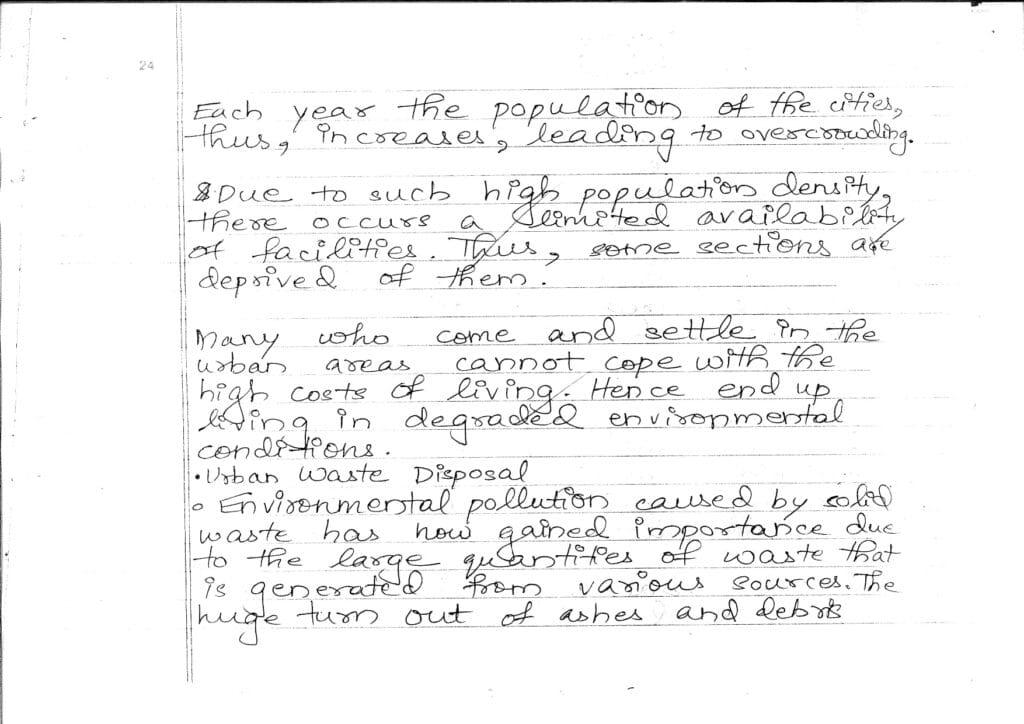 24
Each year the population of the cities,
thus, increases, leading to overcrowding.
Due to such high population density,
there occurs a limited availability
of facilities. Thus, some sections are
deprived of them.
Many who come and settle in the
urban areas cannot cope with the
high costs of living. Hence end up
living in degraded environmental
conditions.
• Urban Waste Disposal
o Environmental pollution caused by solid
waste has now gained importance due
to the large quantities of waste that
is generated from various sources. The
huge turn out of ashes and debris